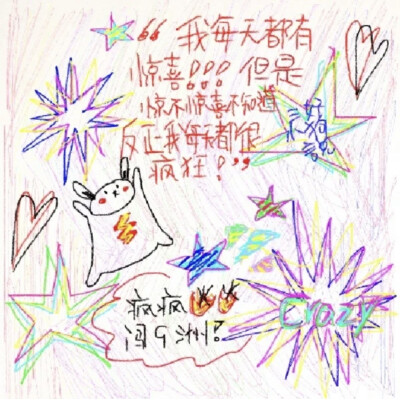 “我每天都有
惊喜!!!但是
惊不惊喜不知道
反正我每天都很
疯狂!”
疯疯
闯9洲!
Crazy